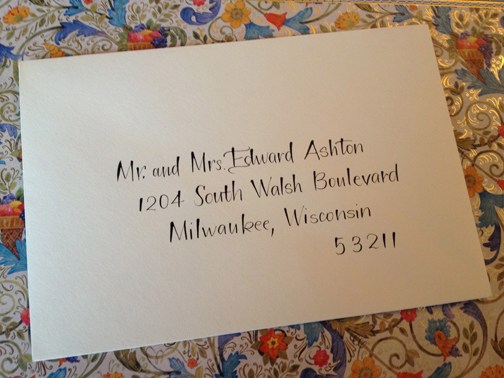 Mr. and Mrs. Edward Ashton
1204 South Walsh Boulevard
Milwaukee, Wisconsin
53211